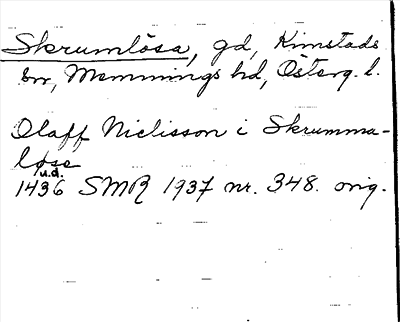 Skrumlösa, gd, Kimstads
sn, Memmings hd, Österg. l.
Olaff Niclisson i Skrumma-
løse
u.d.
1436 SMR 1937 nr. 348. orig.